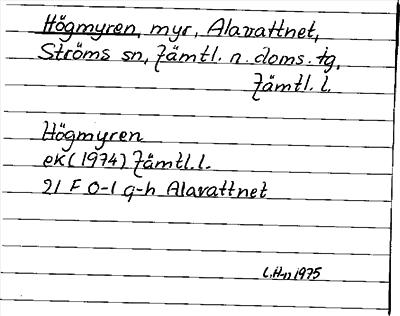 Högmyren, myr, Alavattnet,
Ströms sn, Jämtl. n. doms. tg,
Jämtl. l.
Högmyren
eK (1974) Jämtl. l.
21 F 0-1 g-h Alavattnet
1975